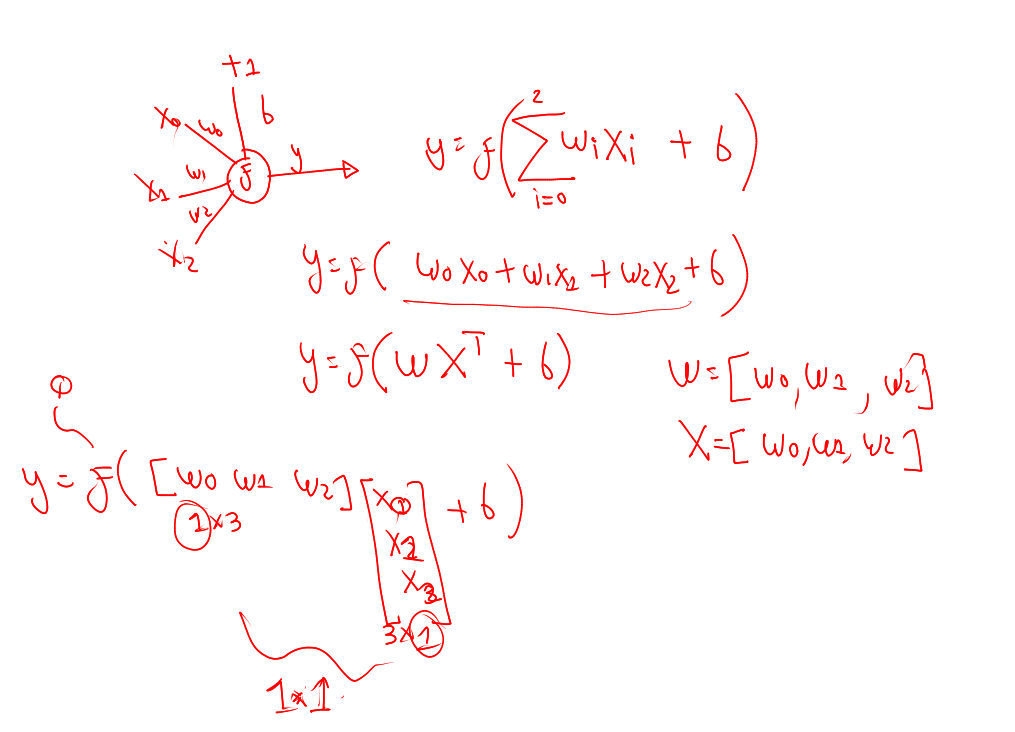 +1
b
x0 w0
x1 w1
f y
w2
x2
y = f( 2 ∑ i=0 wixi + b )
y = f( w0x0 + w1x1 + w2x2 + b )
y = f( w X^T + b )
w = [w0, w1, w2]
X = [w0, w1, w2]
φ
y = f( [w0 w1 w2] [x0 x2 x3] + b )
1x3
3x1
1x1.